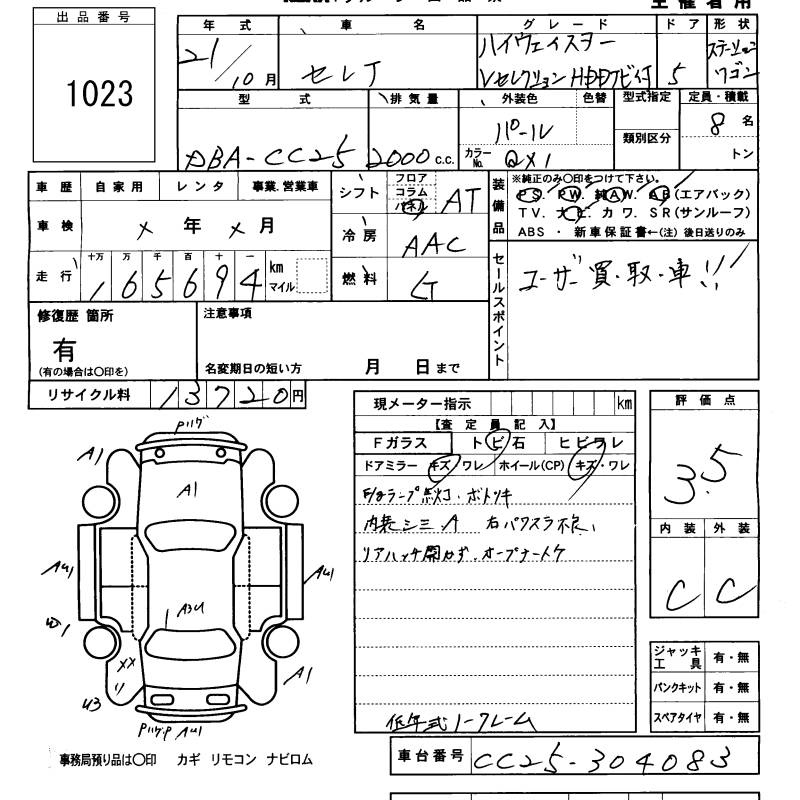 出品番号
1023
年式 車名 グレード ドア 形状
21/10月 セレナ ハイウェイスター Vセレクション HDDナビ付 5 ステーションワゴン
型式 排気量 外装色 色替 型式指定 定員・積載
DBA-CC25 2000 c.c. パール 8名
カラーNo. QX1 類別区分 トン
車歴 自家用 レンタ 事業.営業車
車検 × 年 × 月
走行 十万 万 千 百 十 一
165694 km マイル
シフト フロア コラム パネル AT
冷房 AAC
燃料 G
装備品
※純正のみ〇印をつけて下さい。
PS. PW. 純AW. AB(エアバック)
TV. ナビ. カワ. SR(サンルーフ)
ABS ・ 新車保証書←(注) 後日送りのみ
セールスポイント
ユーザー買・取・車!!
修復歴 箇所
有
(有の場合は〇印を)
注意事項
名変期日の短い方 月 日まで
リサイクル料 13720円
現メーター指示 km
【査定員記入】
Fガラス トビ石 ヒビワレ
ドアミラー キズ/ワレ ホイール(CP) キズ・ワレ
内装シミA 右パワスラ不良、
リアハッチ開かず.オープナー欠ケ
低年式ノークレーム
評価点
3.5
内装 外装
C C
ジャッキ工具 有・無
パンクキット 有・無
スペアタイヤ 有・無
A1
A1
AW1
AW1
A3U
W1
XX
U3
A1
AW1
事務局預り品は〇印 カギ リモコン ナビロム
車台番号 CC25-304083